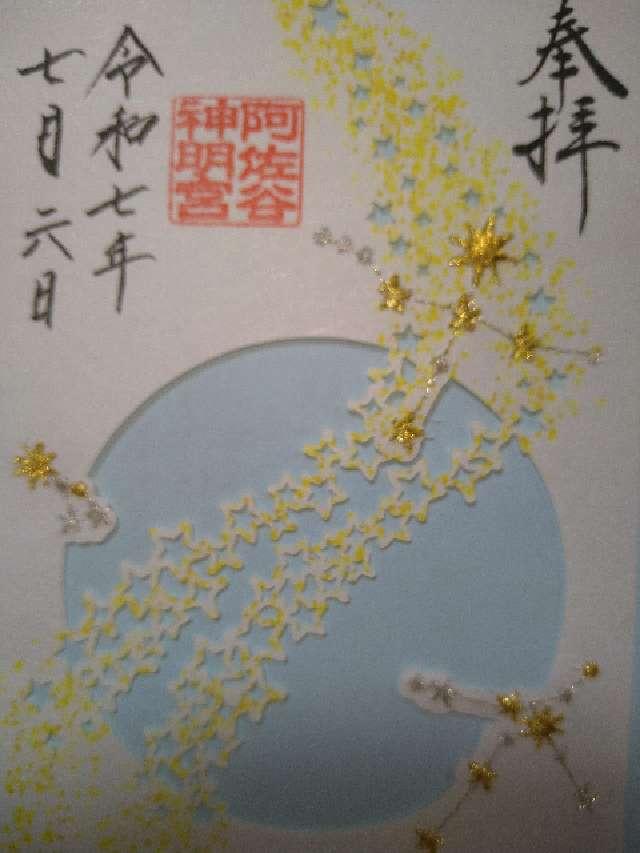 奉拝
阿佐谷
神明宮
令和七年
七月六日